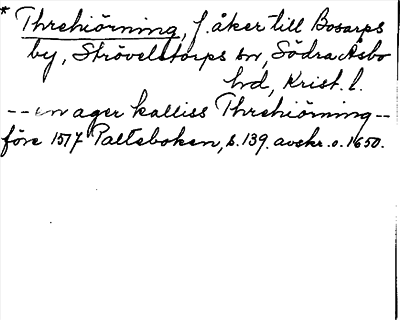 * Threhiörning, f. åker till Bosarps
by, Strövelstorps sn, Södra Åsbo
hd, Krist. l.
-- en ager kalliss Threhiörning --
före 1517 Palteboken, s. 139. avskr. o. 1650.